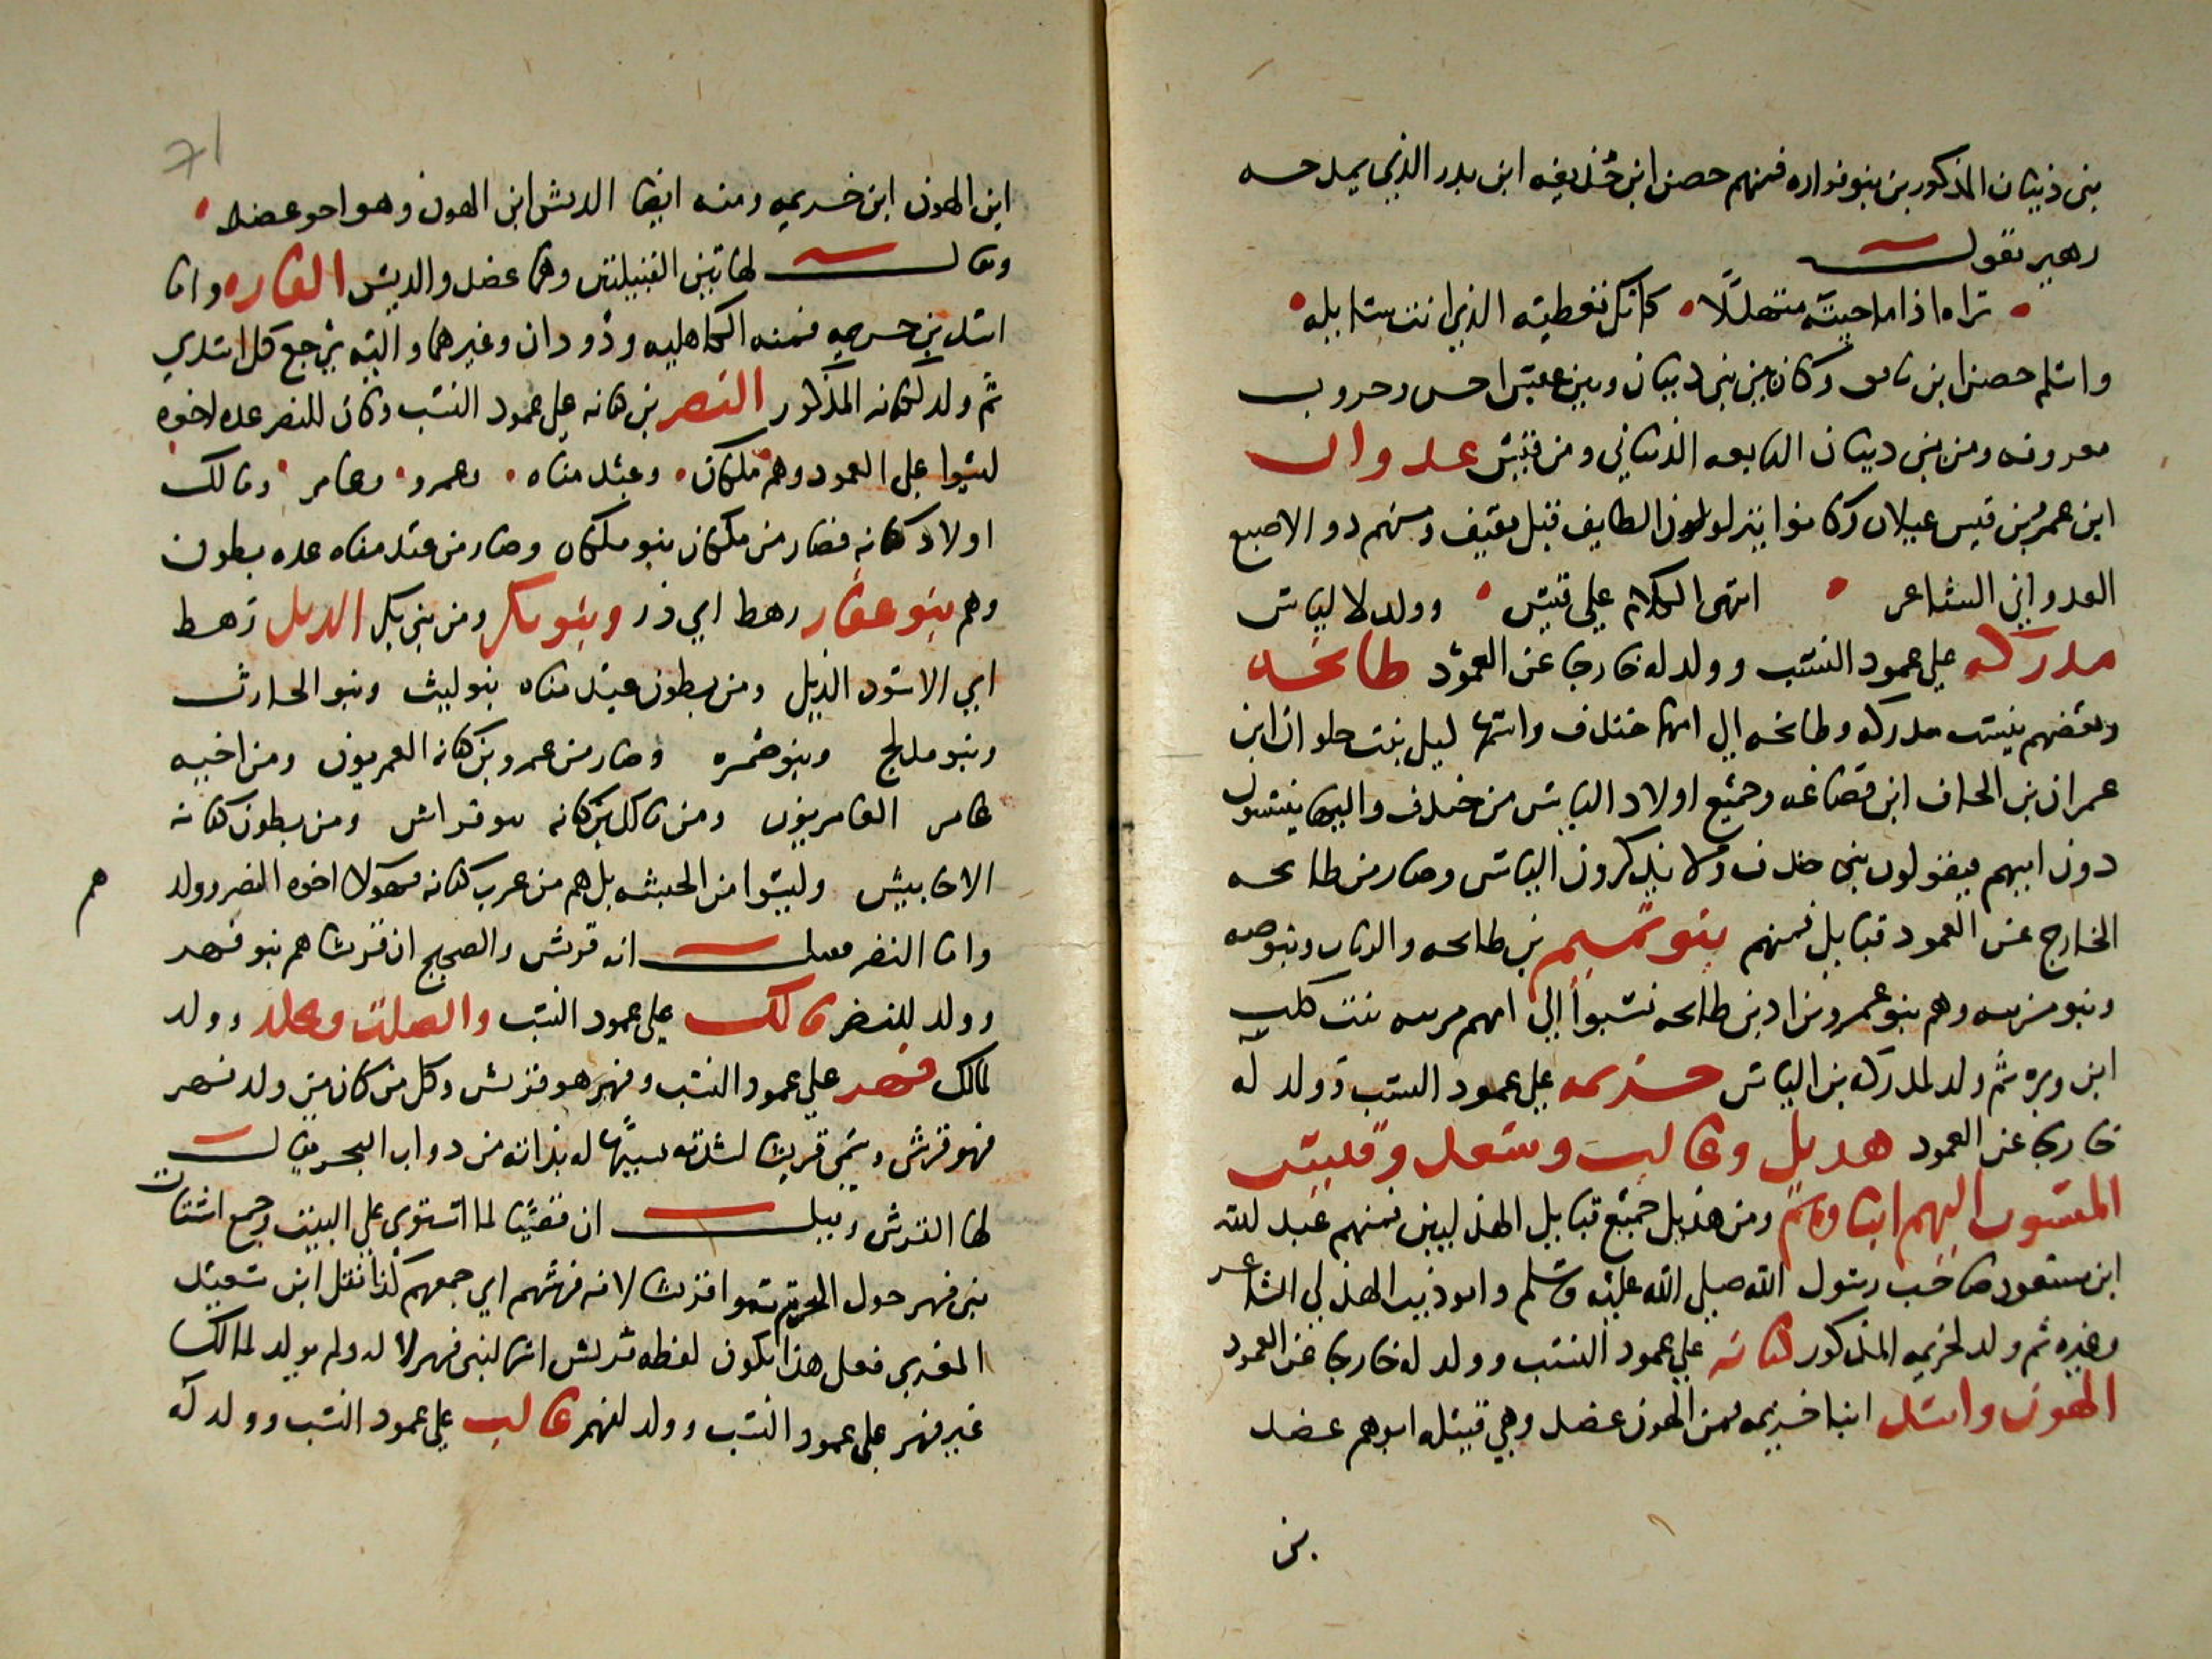 بني ذبيان المذكورين بنو فزاره فمنهم حصن ابن حذيفه ابن بدر الذي يمدحه
زهير بقول
تراه اذا ما جيته متهللا • كانك تعطيه الذي انت سايله •
واسلم حصن ابن وكان بين بني ذبيان وبين عبس احن وحروب
معروفه ومن بني ذبيان النابعه الذبياني ومن قيس عدوان
ابن عمرو بن قيس عيلان وكانوا ينزلون الطايف قبل ثقيف ومنهم ذو الاصبع
العدواني الشاعر • انتهى الكلام علي قيس • وولد لالياس
مدركه علي عمود النسب وولد له خارجا عن العمود طابخه
وبعضهم ينسب مدركه وطابخه الي امهما خندف واسمها ليلي بنت حلوان ابن
عمران بن الحاف ابن قضاعه وجميع اولاد الياس من خندف واليها ينتسبون
دون ابيهم فيقولون بني خندف ولا يذكرون الياس وصار من طابخه
الخارج عن العمود قبايل فمنهم بنو تميم بن طابخه والرباب وبنو ضبه
وبنو مزينه وهم بنو عمرو بن اد بن طابخه نسبوا الي امهم مزينه بنت كلب
ابن وبره ثم ولد لمدركه بن الياس خزيمه علي عمود النسب وولد له
خارجا عن العمود هذيل وغالب وسعد وقيس
المنسوب اليهم ومن هذيل جميع قبايل الهذليين فمنهم عبد الله
ابن مسعود صاحب رسول الله صلي الله عليه وسلم وابو ذيب الهذلي الشاعر
وغيره ثم ولد لخزيمه المذكور كنانه علي عمود النسب وولد له خارجا عن العمود
الهون واسد ابنا خزيمه فمن الهون عضل وهي قبيله ابوهم عضل
بن
71
ابن الهون ابن خزيمه ومنه ايضا الديش ابن الهون وهو اخو عضل •
ويقال لهاتين القبيلتين وهما عضل والديش القاره واما
اسد بن خزيمه فمنه الكاهليه ودودان وغيرهما واليه يرجع كل اسدي
ثم ولد لكنانه المذكور النضر بن كنانه علي عمود النسب وكان للنضر عده اخوه
ليسوا علي العمود وهم ملكان • وعبد مناه • وعمرو • وعامر • ومالك
اولاد كنانه فصار من ملكان بنو ملكان وصار من عبد مناه عده بطون
وهم بنو غفار رهط ابي ذر وبنو بكر ومن بني بكر الديل رهط
ابي الاسود الديلي ومن بطون عبد مناه بنو ليث وبنو الحارث
وبنو مدلج وبنو ضمره وصار من عمرو بن كنانه العمريون ومن اخيه
عامر العامريون ومن مالك بن كنانه بنو فراس ومن بطون كنانه
الاحابيش وليسوا من الحبشه بل هم من عرب كنانه فهولا اخوه النضر وولد
هم
واما النضر فقيل انه قريش والصحيح ان قريشا هم بنو فهر
وولد للنضر مالك علي عمود النسب والصلت ومخلد وولد
لمالك فهر علي عمود النسب وفهر هو قريش وكل من كان من ولد فهر
فهو قرشي وسمي قريشا لشدته تشبيها له بدابه من دواب البحر يقال
لها القرش وقيل ان قصيا لما استولي علي البيت وجمع اشتات
بني فهر حول الحرم سموا قريشا لانه قرشهم اي جمعهم كذا نقل ابن سعيد
المغربي فعلي هذا يكون لفظه قريش اسما لبني فهر لا له ولم يولد لمالك
غير فهر علي عمود النسب وولد لفهر غالب علي عمود النسب وولد له